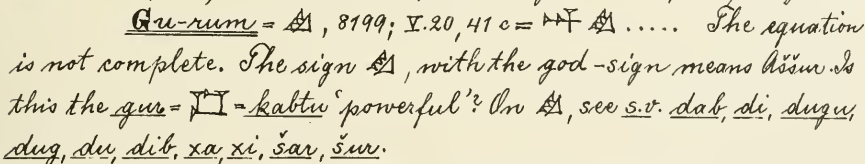 Gu-rum = 𒄭, 8199; V. 20, 41 c = 𒀭 𒄭 ..... The equation
is not complete. The sign 𒄭, with the god-sign means Aššur. Is
this the gur = = kabtu 'powerful'? On 𒄭, see s.v. dab, di, dugu,
dug, du, dib, xa, xi, šar, šur.